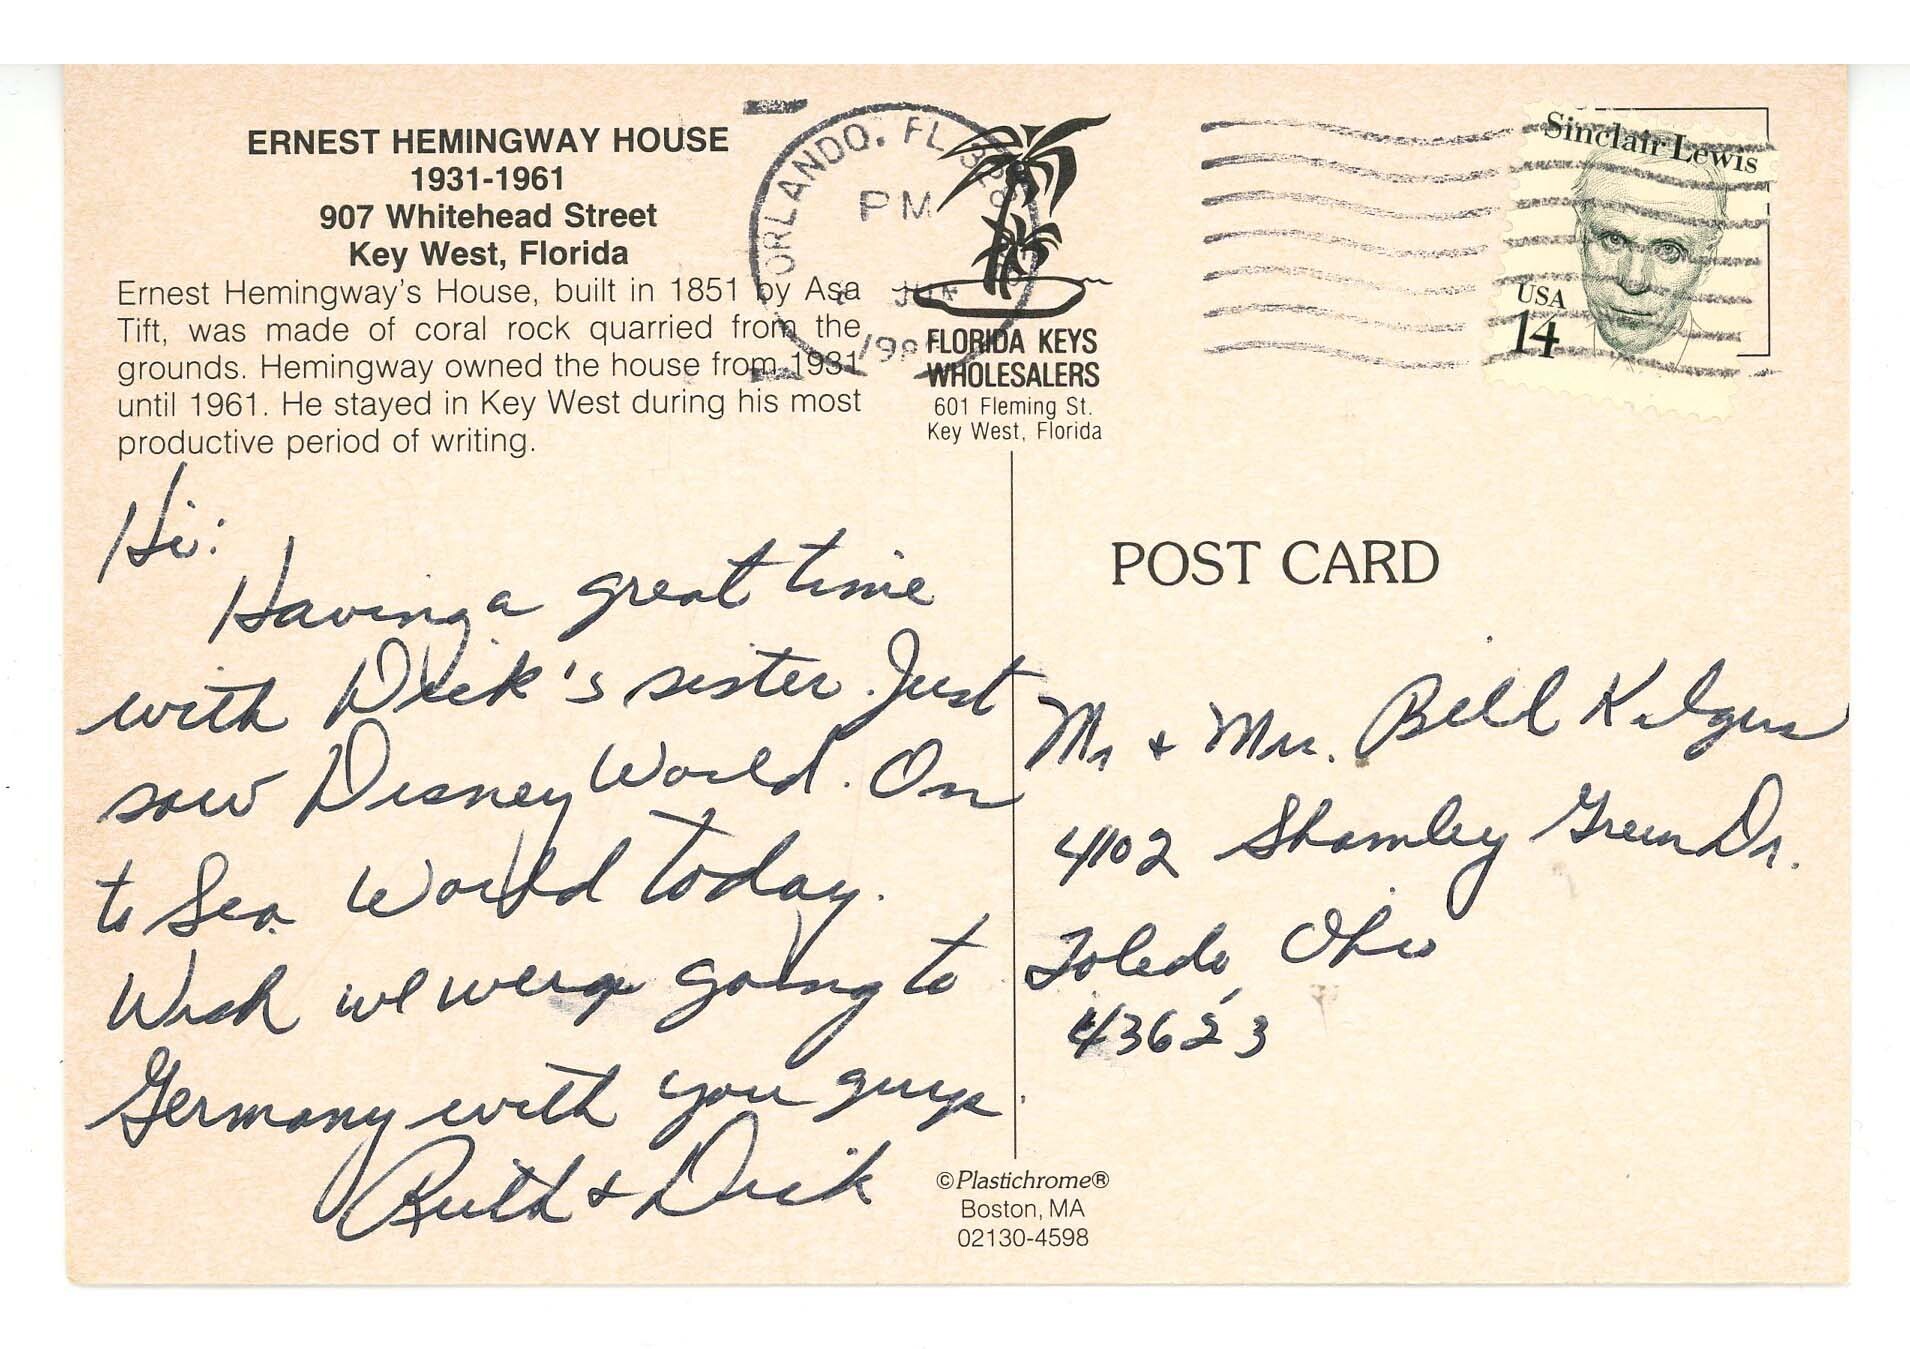 ERNEST HEMINGWAY HOUSE
1931-1961
907 Whitehead Street
Key West, Florida
Ernest Hemingway's House, built in 1851 by Asa
Tift, was made of coral rock quarried from the
grounds. Hemingway owned the house from 1931
until 1961. He stayed in Key West during his most
productive period of writing.
ORLANDO, FL
PM
JUN
FLORIDA KEYS
WHOLESALERS
601 Fleming St.
Key West, Florida
Sinclair Lewis
USA
14
Hi:
Having a great time
with Dick's sister. Just
saw Disney World. On
to Sea World today.
Wish we were going to
Germany with you guys.
Ruth & Dick
POST CARD
Mr + Mrs. Bill Kilgus
4102 Shamley Green Dr.
Toledo, Ohio
43623
©Plastichrome®
Boston, MA
02130-4598